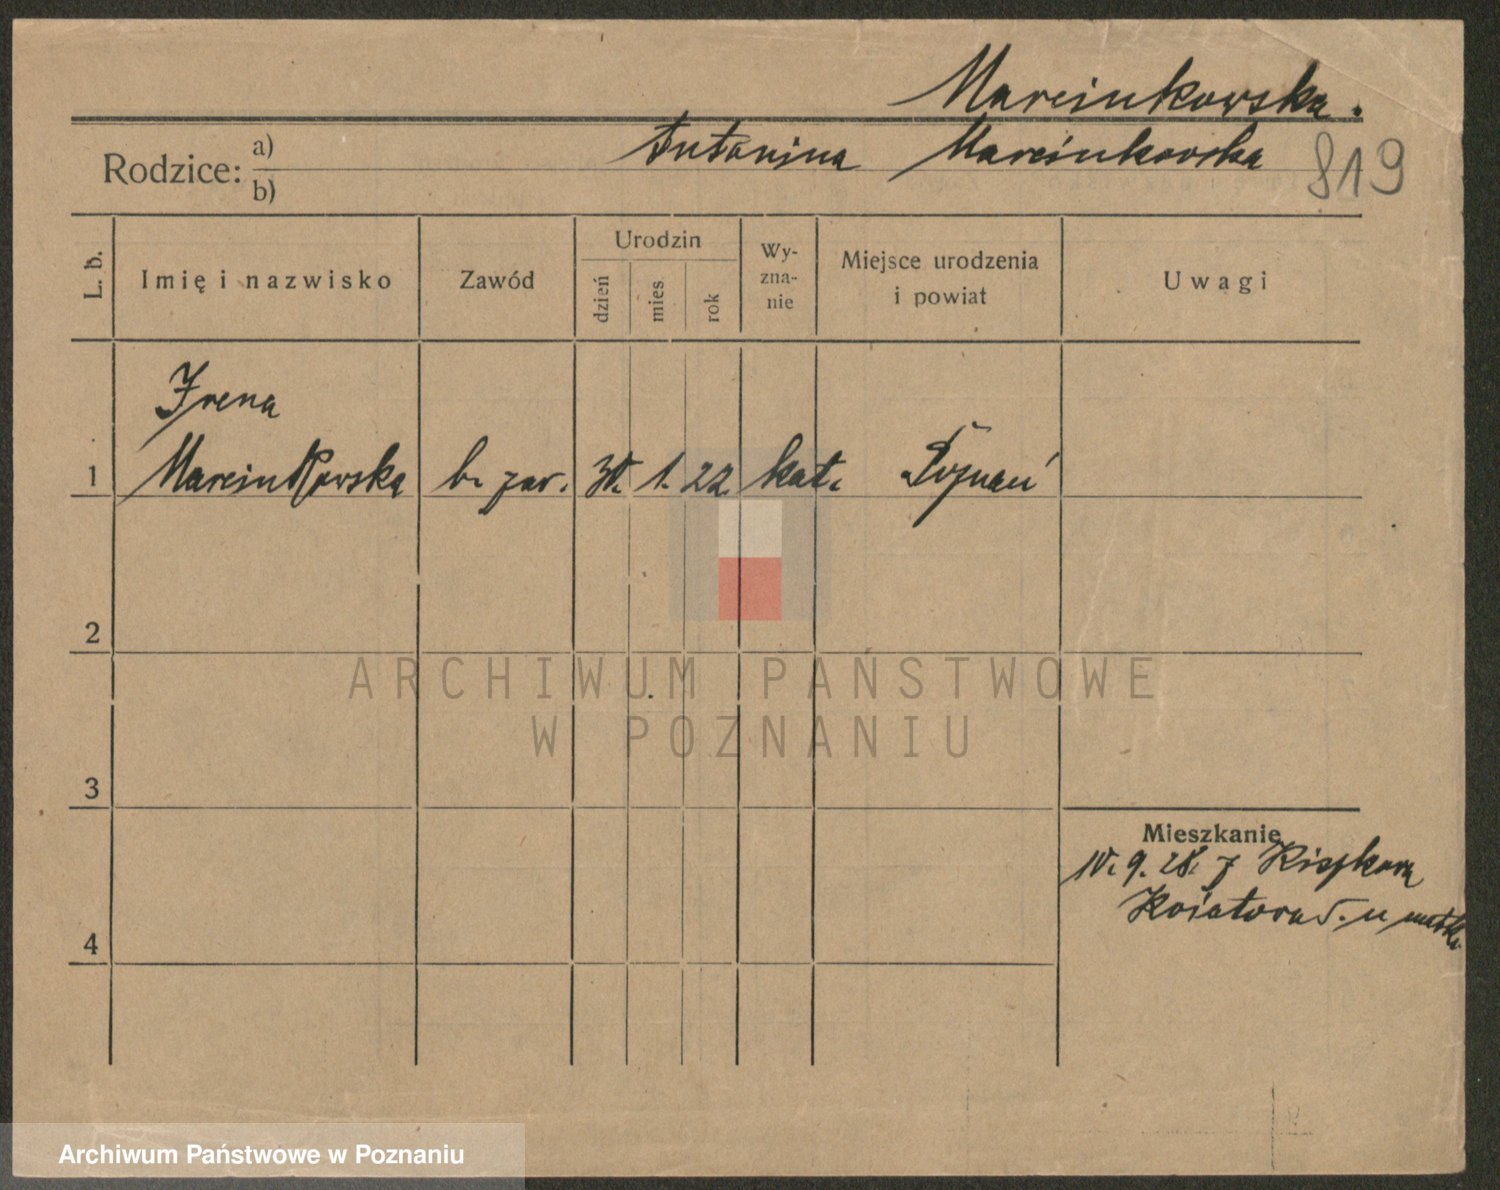 Marcinkowska.
Rodzice: a) Antonina Marcinkowska 819
b)
L. b.
Imię i nazwisko
Zawód
Urodzin
dzień
mies
rok
Wy-
zna-
nie
Miejsce urodzenia
i powiat
Uwagi
Irena
1 Marcinkowska b. zaw. 30. 1. 22. kat. Poznań
2
ARCHIWUM PAŃSTWOWE
W POZNANIU
3
Mieszkanie
10. 9. 28. z Kiszkowa
u matki
4
Archiwum Państwowe w Poznaniu